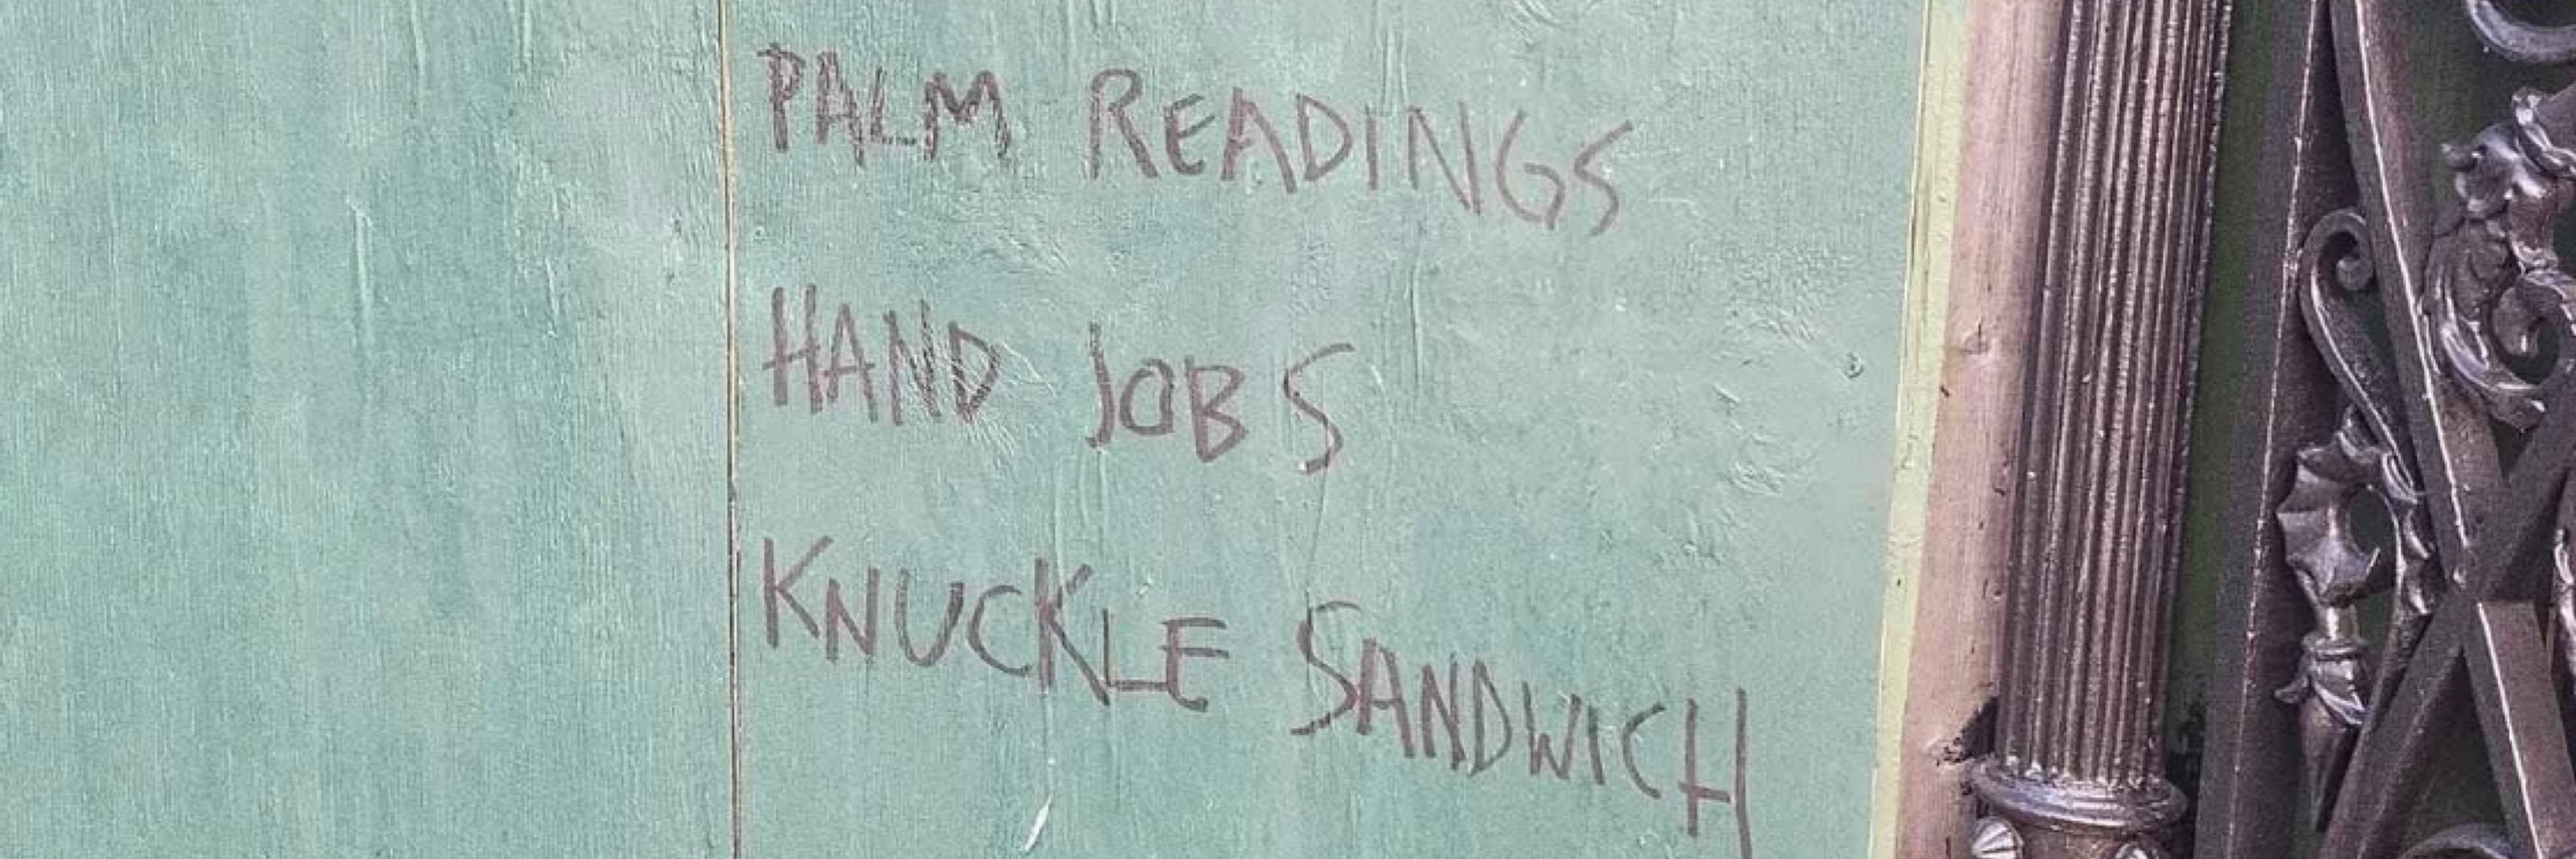 PALM READINGS
HAND JOBS
KNUCKLE SANDWICH